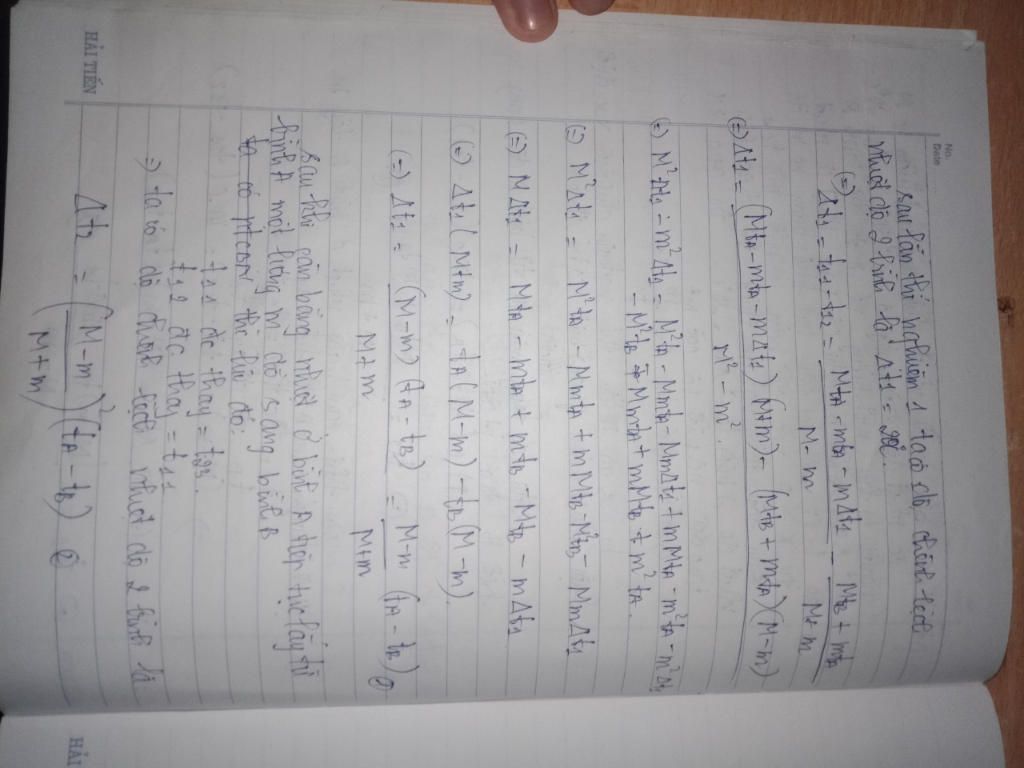 No.
Date
sau lần thí nghiệm 1 ta có độ chênh lệch
nhiệt độ 2 bình là Δt1 = 20℃.
(=) Δt1 = t11 - t12 = (MtA - mtA - mΔt1)/(M - m) - (MtB + mtA)/(M + m)
(=) Δt1 = ((MtA - mtA - mΔt1)(M+m) - (MtB + mtA)(M-m))/(M² - m²).
(=) M²Δt1 - m²Δt1 = M²tA - MmtA - MmΔt1 + mMtA - m²tA - m²Δt1
- M²tB - MmtA + mMtB + m²tA.
(=) M²Δt1 = M²tA - MmtA + mMtB - M²tB - MmΔt1
(=) MΔt1 = MtA - mtA + mtB - MtB - mΔt1
(=) Δt1(M+m) = tA(M-m) - tB(M-m).
(=) Δt1 = ((M-m)(tA - tB))/(M+m) = (M-m)/(M+m) (tA - tB) ①
Sau khi cân bằng nhiệt ở bình A tiếp tục lấy từ
bình A một lượng m đổ sang bình B
thì lúc đó.
t11 đc thay = t23.
t12 đc thay = t11
=) ta có độ chênh lệch nhiệt độ 2 bình là
Δt2 = ((M-m)/(M+m))² (tA - tB) ②
HẢI TIẾN
HẢI